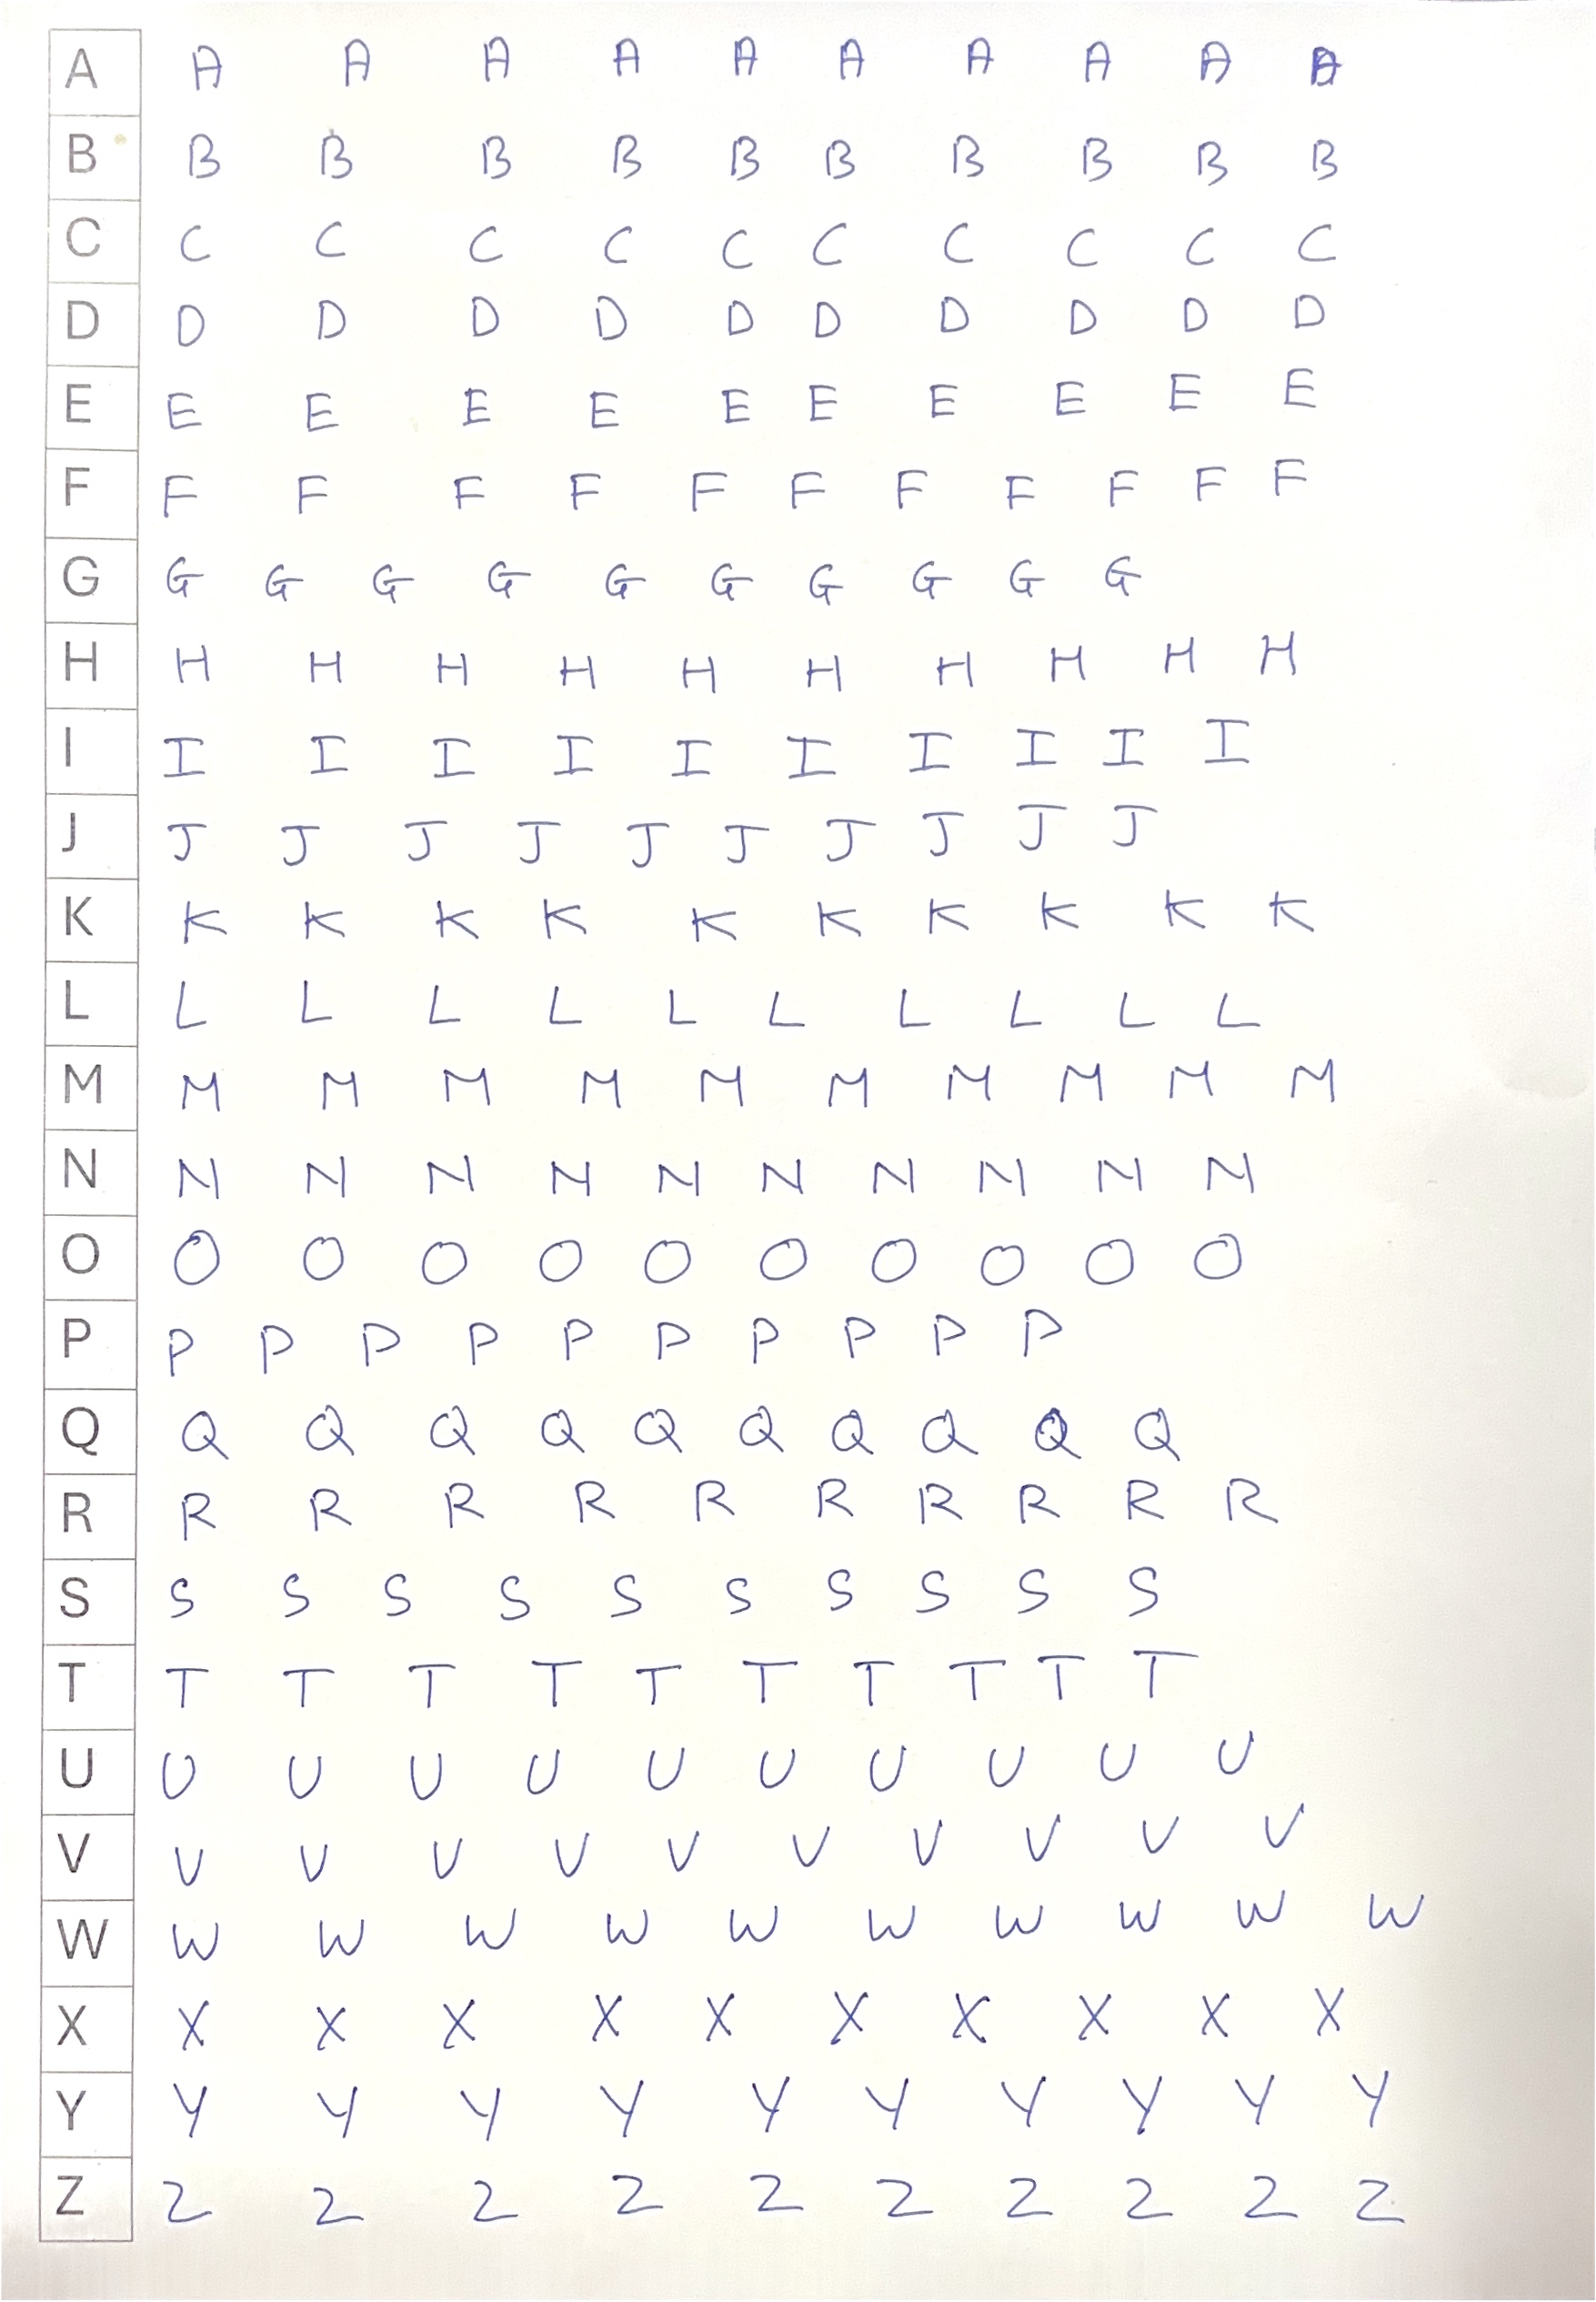 A A A A A A A A A A A
B B B B B B B B B B B
C C C C C C C C C C C
D D D D D D D D D D D
E E E E E E E E E E E
F F F F F F F F F F F F
G G G G G G G G G G G
H H H H H H H H H H H
I I I I I I I I I I I
J J J J J J J J J J J
K K K K K K K K K K K
L L L L L L L L L L L
M M M M M M M M M M M
N N N N N N N N N N N
O O O O O O O O O O O
P P P P P P P P P P P
Q Q Q Q Q Q Q Q Q Q Q
R R R R R R R R R R R
S S S S S S S S S S S
T T T T T T T T T T T
U U U U U U U U U U U
V V V V V V V V V V V
W W W W W W W W W W W
X X X X X X X X X X X
Y Y Y Y Y Y Y Y Y Y Y
Z Z Z Z Z Z Z Z Z Z Z